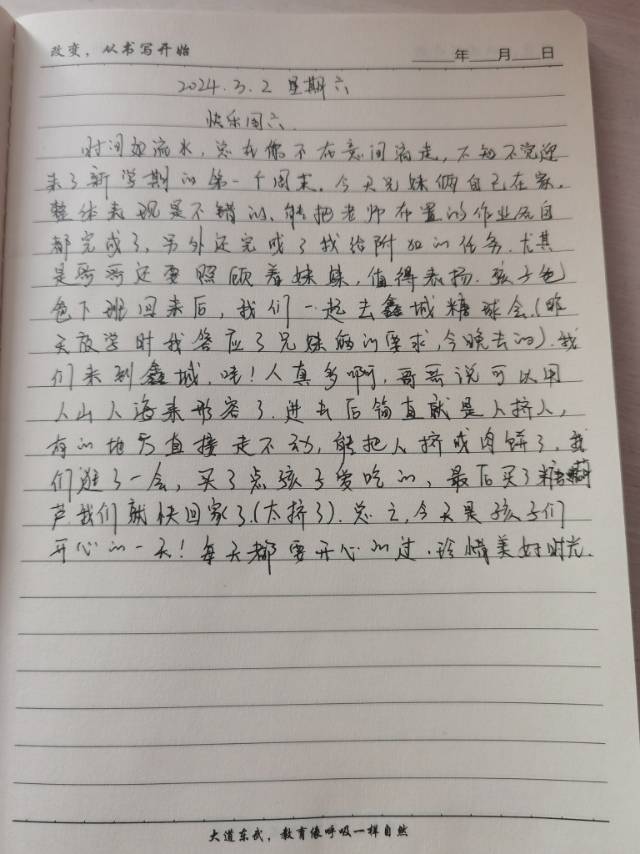 改变，从书写开始
____年___月___日
2024.3.2 星期六
快乐周六
时间如流水，总我俩不在意间流走，不知不觉迎
来了新学期的第一个周末。今天兄妹俩自己在家，
整体表现是不错的，能把老师布置的作业各自
都完成了，另外还完成了我给附加的任务。尤其
是哥哥还要照顾着妹妹，值得表扬。孩子爸
爸下班回来后，我们一起去鑫城糖球会（昨
天放学时我答应了兄妹俩的要求，今晚去的）。我
们来到鑫城，哇！人真多啊，哥哥说可以用
人山人海来形容了。进去后简直就是人挤人，
有的地方直接走不动，能把人挤成肉饼了。我
们逛了一会，买了点孩子爱吃的，最后买了糖葫
芦我们就快回家了（太挤了）。总之，今天是孩子们
开心的一天！每天都要开心的过，珍惜美好时光。
大道东武，教育像呼吸一样自然